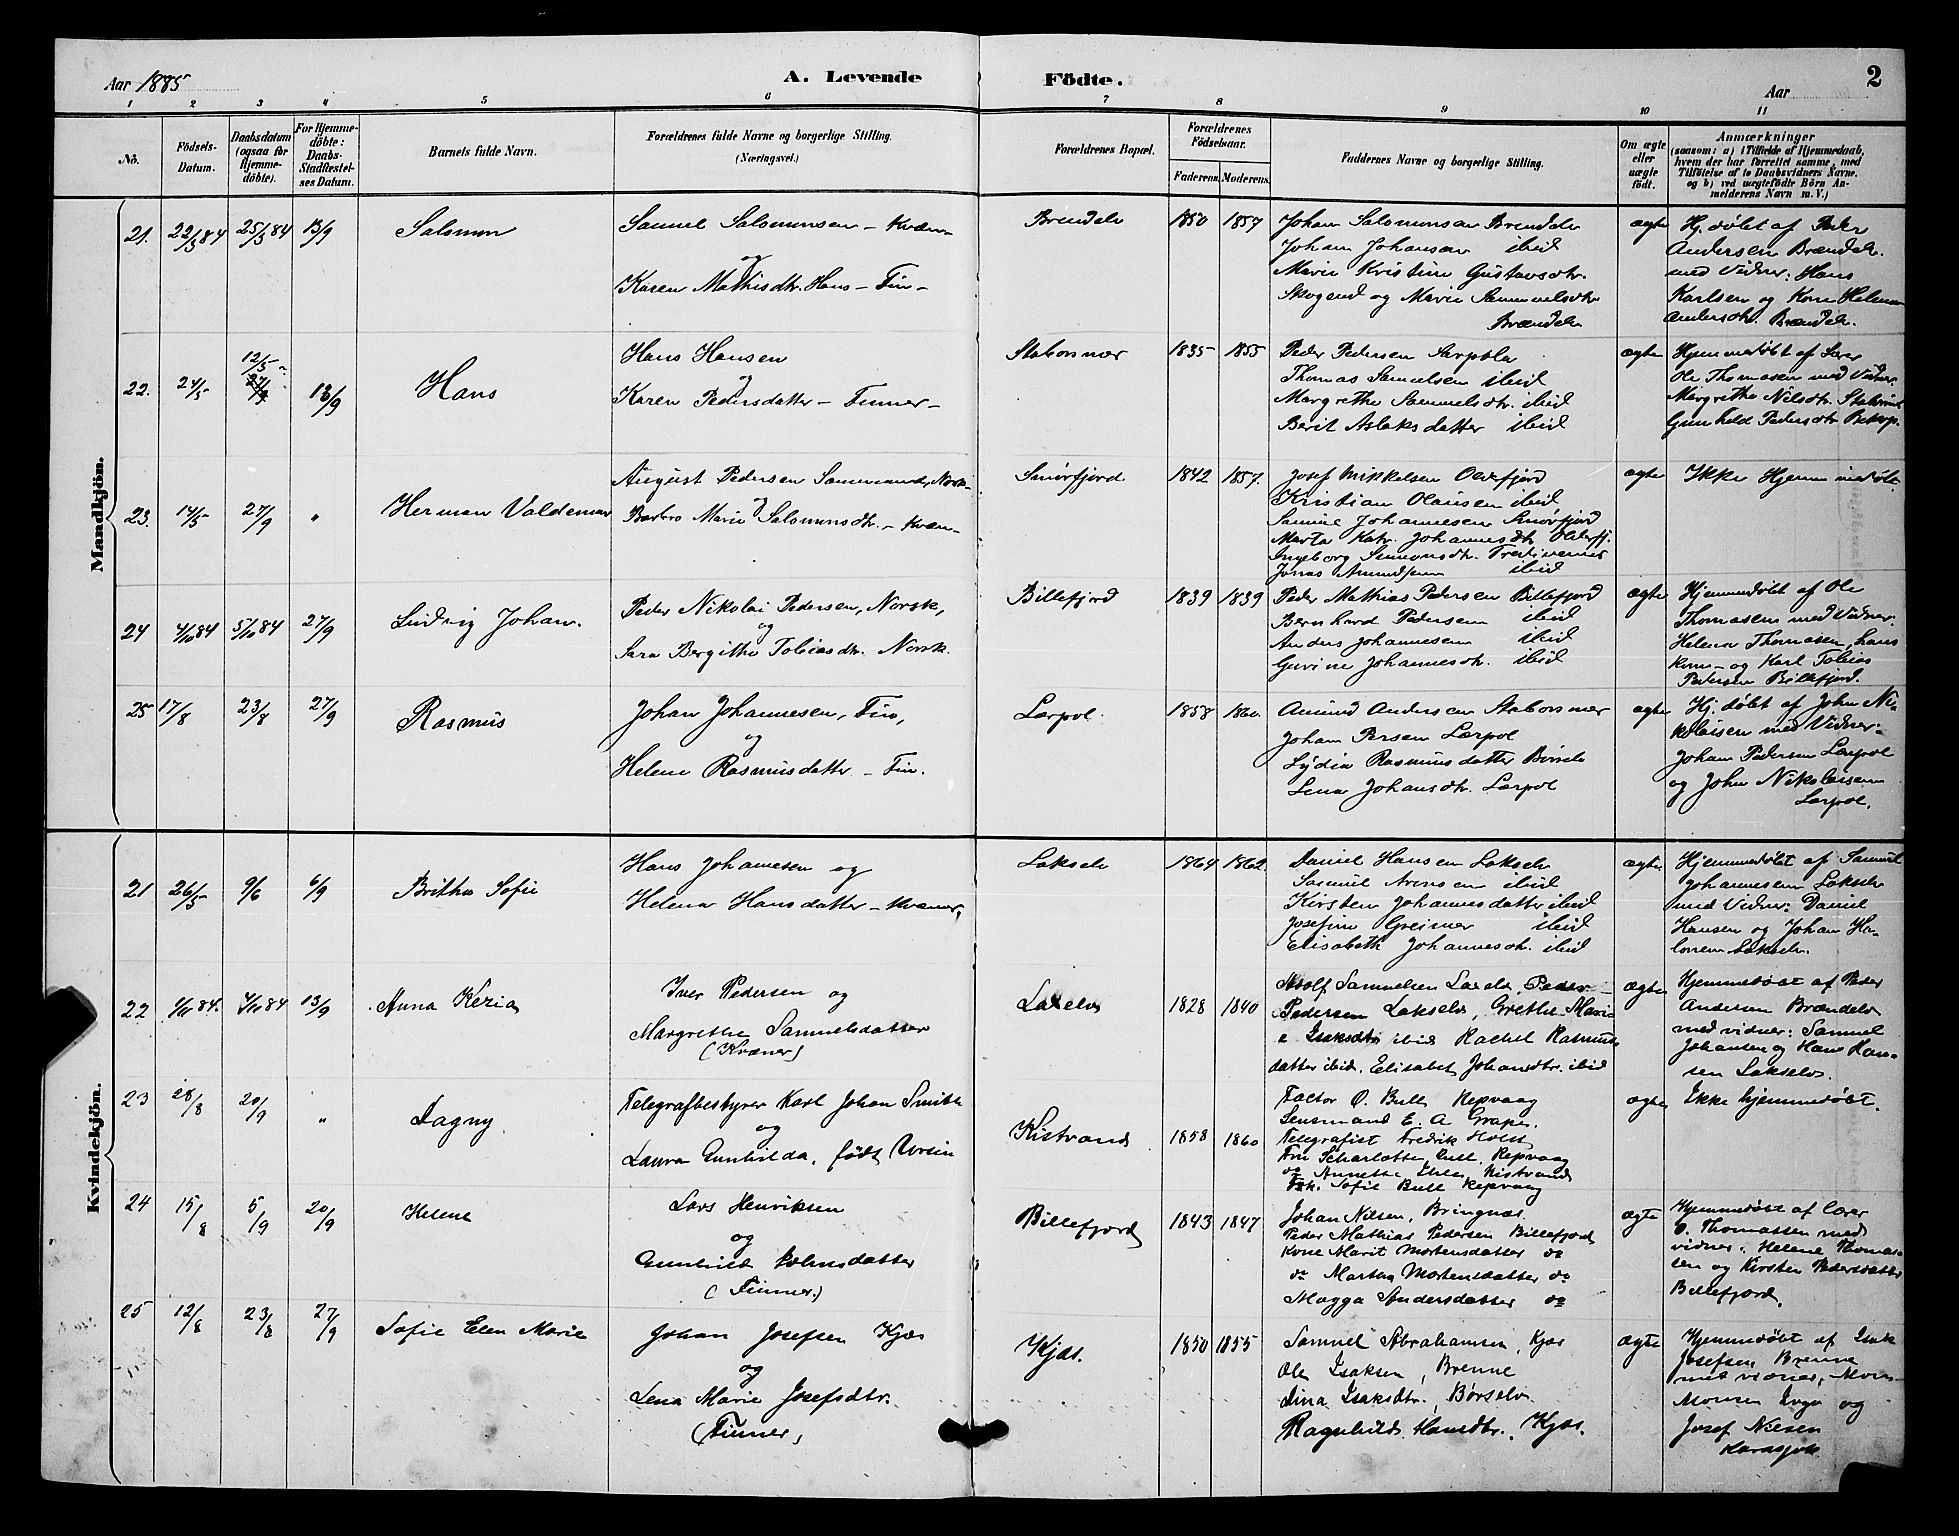 Aar 1885
A. Levende
Födte.
Aar
2
1 2 3 4 5 6 7 8 9 10 11
Nö.
Födsels-
Datum.
Daabsdatum
(ogsaa for
Hjemme-
döbte).
For Hjemme-
döbte:
Daabs-
Stadfæstel-
ses Datum.
Barnets fulde Navn.
Forældrenes fulde Navne og borgerlige Stilling.
(Næringsvei.)
Forældrenes Bopæl.
Forældrenes
Födselsaar.
Faderens. Moderens.
Faddernes Navne og borgerlige Stilling.
Om ægte
eller
uægte
födt.
Anmærkninger
(saasom: a) i Tilfælde af Hjemmedaab,
hvem der har forrettet samme, med
Tilföielse af to Daabsvidners Navne,
og b) ved uægtefödte Börn An-
melderens Navn m.V.)
Mandkjön.
21. 22/3 84 25/3 84 13/9 Salomon
Samuel Salomonsen – Kvæn –
og
Karen Mathisdtr. Hans – Fin –
Brendelv 1850 1857
Johan Salomonsen Brendelv
Johan Johansen ibid
Marie Kristine Gustavsdtr.
Skogend og Marie Sammelsdtr
Brændelv
ægte
Hj. døbt af Peder
Andersen Brændelv.
med Vidner: Hans
Karlsen og Kone Helena
Andersdtr. Brændelv.
22. 24/5 12/5 – 13/9 Hans
Hans Hansen
og
Karen Pedersdatter – Finner –
Staborsnær 1835 1855
Peder Pedersen Lærpole
Thomas Samuelsen ibid
Margrethe Sammelsdtr. ibid
Berit Aslaksdatter ibid
ægte
Hjemmedøbt af Lærer
Ole Thomasen med Vidner
Margrethe Nilsdtr.
Gunhild Pedersdtr
23. 14/5 27/9 "
Herman Valdemar
August Pedersen Sømand, Norsk –
og
Barbro Marie Salomonsdtr. – Kvæn –
Smørfjord 1842 1857.
Josef Mikkelsen Olderfjord
Kristian Olausen ibid
Samuel Johannesen Smørfjord
Marta Katr. Johannesdtr Olderfj.
Ingeborg Simonsdtr.
Jonas Amundsen ibid
ægte Ikke Hjemmedøbt.
24 4/10 84 5/10 84 27/9 Ludvig Johan.
Peder Nikolai Pedersen, Norsk,
og
Sara Bergithe Tobiasdtr. Norsk.
Billefjord 1839 1839
Peder Mathias Pedersen Billefjord
Bernhard Pedersen ibid
Anders Johannesen ibid
Gurine Johannesdtr. ibid
ægte
Hjemmedøbt af Ole
Thomasen med Vidner.
Helene Thomasen, hans
kone – og Karl Tobias
Pedersen Billefjord.
25 17/8 23/8 27/9 Rasmus
Johan Johannesen, Fin,
og
Helene Rasmusdatter – Fin.
Lærpol. 1858 1860.
Amund Andersen Staborsnær
Johan Persen Lærpol
Lydia Rasmusdatter Børselv
Lena Johansdtr. Lærpol
ægte
Hj. døbt af John Ni-
kolaisen med Vidner:
Johan Pedersen Lærpol
og John Nikolaisen
Lærpol.
Kvindekjön.
21 26/5 9/6 6/9 Britha Sofie
Hans Johannesen og
Helena Hansdatter – Kvæner,
Lakselv 1864 1862.
Daniel Hansen Lakselv
Samuel Arensen ibid
Kirsten Johannesdatter ibid
Josefine Greiner ibid
Elisabeth Johannesdtr. ibid
ægte
Hjemmedøbt af Samuel
Johannesen Lakselv
med Vidner: Daniel
Hansen og Johan Ha-
lonen Lakselv.
22 1/10 84. 4/10 84 13/9 Anna Kezia
Iver Pedersen og
Margrethe Samuelsdatter
(Kvæner)
Laxelv 1828 1840
Adolf Samuelsen Laxelv, Peder
Pedersen Lakselv, Grethe Mari-
e Isaksdtr ibid Rachel Rasmus-
datter ibid. Elisabet Johansdtr. ibid
ægte
Hjemmedøbt af Peder
Andersen Brændelv
med vidner: Samuel
Johansen og Hans Han-
sen Lakselv.
23 28/8 20/9 " Dagny
Telegrafbestyrer Karl Johan Smith
og
Laura Gunhilda, født Ursin
Kistrand 1858 1860
Factor O. Bull Repvaag
Lensmand E. A Grape.
Telegrafist Fredrik Holst
Fru Scharlotte Bull, Repvaag
do Annette Kistrand
Frk. Sofie Bull Repvaag
ægte Ikke hjemmedøbt.
24 15/8 5/9 20/9 Helene
Lars Henriksen
og
Gunhild Johnsdatter
(Finner.)
Billefjord 1843 1847
Johan Nilsen, Bringnæs
Peder Mathias Pedersen Billefjord
Kone Marit Mortensdatter do
do Martha Mortensdatter do
Magga Andersdatter do
ægte
Hjemmedøbt af Lærer
O. Thomassen med
vidner. Helene Thomas-
sen og Kirsten Pedersdatter
Billefjord.
25 12/8 23/8 27/9 Sofie Elen Marie
Johan Josefsen Kjæs
og
Lena Marie Josefsdtr.
(Finner)
Kjæs. 1850 1855
Samuel Abrahamsen, Kjæs
Ole Isaksen, Brenne
Dina Isaksdtr., Børselv
Ragnhild Hansdtr., Kjæs.
ægte
Hjemmedøbt af Isak
Josefsen Brenne
med vidner, Mons
Monsen og
Josef Nilsen
Karasjok